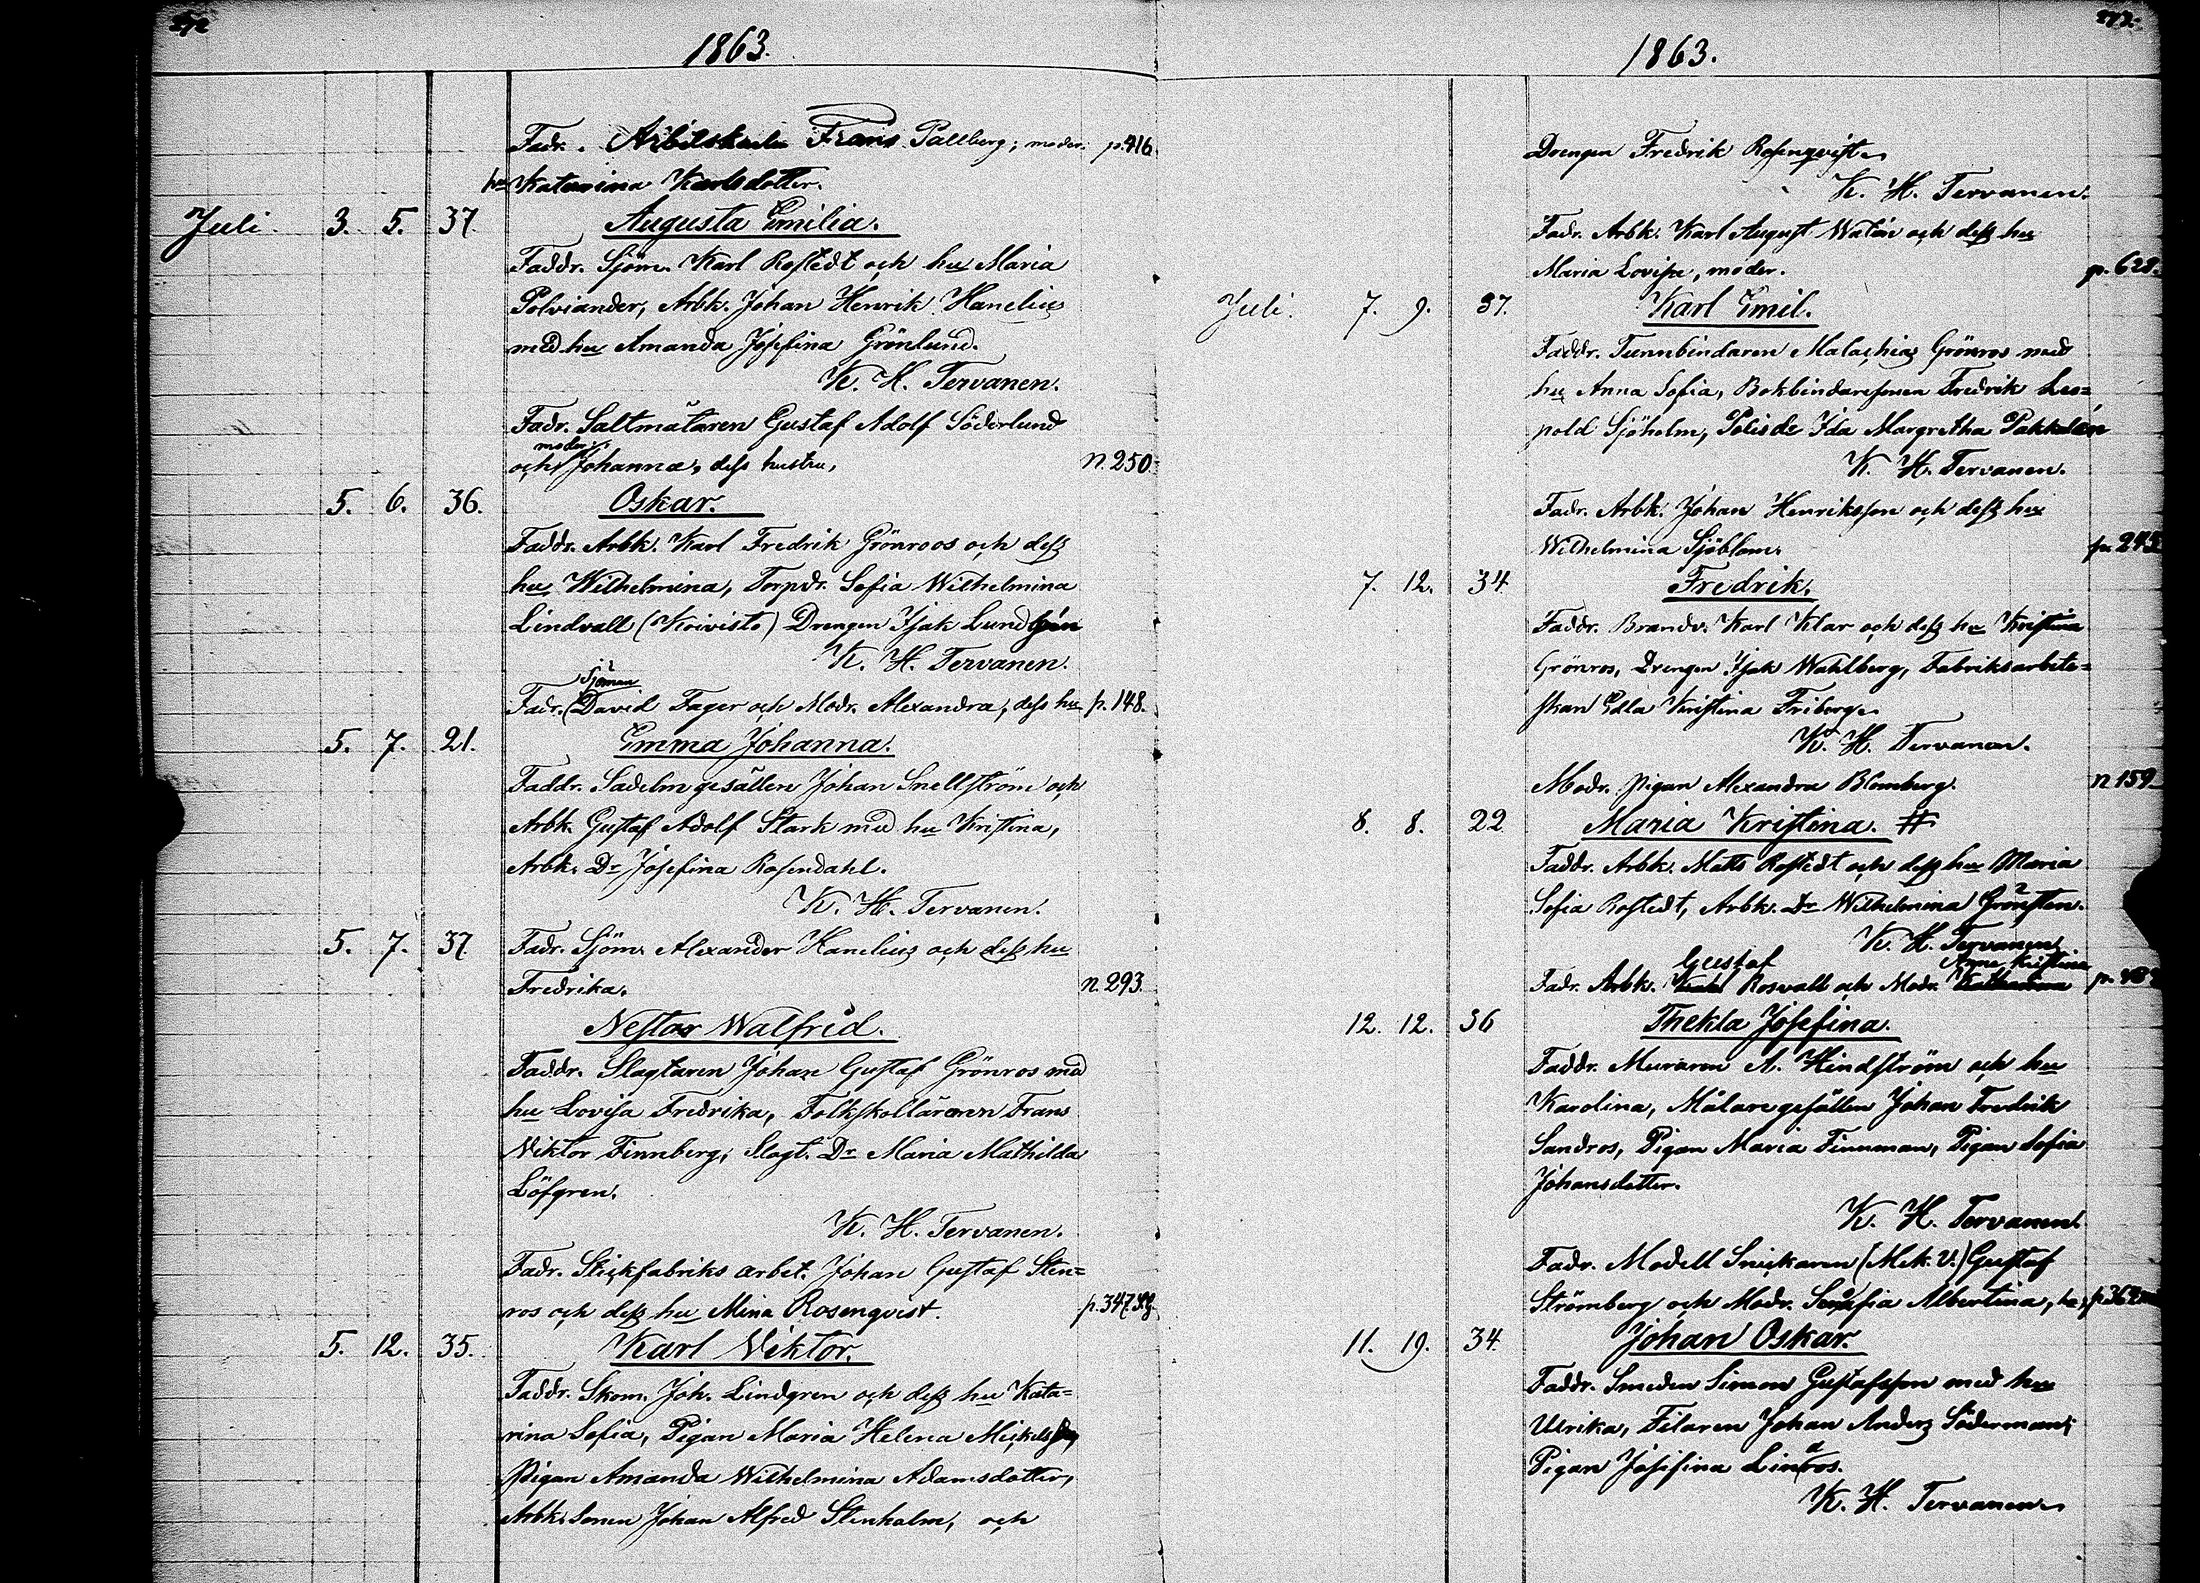 272
1863.
Fadr. Arbetskarlen Frans Pallberg; moder: p. 416.
hu Katarina Karlsdotter.
Juli. 3. 5. 37. Augusta Emilia.
Faddr. Sjöm. Karl Rostedt och hu Maria
Polviander, Arbk. Johan Henrik Hanelius
med hu Amanda Josefina Grönlund.
K. H. Tervanen.
Fadr. Saltmätaren Gustaf Adolf Söderlund
moder
och Johanna, dess hustru, n. 250.
5. 6. 36. Oskar.
Faddr. Arbk. Karl Fredrik Grönroos och dess
hu Wilhelmina, Torpdr. Sofia Wilhelmina
Lindvall (Koivisto) Drengen Isak Lundgrén
K. H. Tervanen.
Sjöman
Fadr. David Fager och Modr. Alexandra, dess hu p. 148.
5. 7. 21. Emma Johanna.
Faddr. Sadelm gesällen Johan Snellström och
Arbk. Gustaf Adolf Stark med hu Kristina,
Arbk. Dr Josefina Rosendahl.
K. H. Tervanen.
5. 7. 37. Fadr. Sjöm. Alexander Hanelius och dess hu
Fredrika. n. 293.
Nestor Walfrid.
Faddr. Slagtaren Johan Gustaf Grönros med
hu Lovisa Fredrika, Folkskolläraren Frans
Viktor Finnberg, Slagt. Dr Maria Mathilda
Löfgren.
K. H. Tervanen.
Fadr. Stickfabriks arbet. Johan Gustaf Sten=
ros och dess hu Mina Rosenqvist. p. 347.
5. 12. 35. Karl Viktor.
Faddr. Skom. Joh. Lindgren och dess hu Kata=
rina Sofia, Pigan Maria Helena
Pigan Amanda Wilhelmina Adamsdotter,
Arbk. sonen Johan Alfred Stenholm, och
272.
1863.
Drengen Fredrik Rosenqvist.
K. H. Tervanen.
Fadr. Arbk. Karl August Walén och dess hu
Maria Lovisa, moder. p. 628.
Juli. 7. 9. 37. Karl Emil.
Faddr. Tunnbindaren Malachias Grönros med
hu Anna Sofia, Bokbindaresonen Fredrik Leo=
pold Sjöholm, Polisdr Ida Margretha Pakkalén
K. H. Tervanen.
Fadr. Arbk. Johan Henriksson och dess hu
Wilhelmina Sjöblom. p. 245
7. 12. 34. Fredrik.
Faddr. Brandv. Karl Klar och dess hu Kristina
Grönros, Drengen Isak Wahlberg, Fabriksarbete=
skan Edla Kristina Friberg.
K. H. Tervanen.
Modr. pigan Alexandra Blomberg. n 159.
8. 8. 22 Maria Kristina. #
Faddr. Arbk. Matts Rostedt och dess hu Maria
Sofia Rostedt, Arbk. Dr Wilhelmina Grönsten.
K. H. Tervanen.
Gustaf Anna Kristina
Fadr. Arbk. Rosvall och Modr.
12. 12. 36 Thekla Josefina.
Faddr. Muraren A. Hindström och hu
Karolina, Målaregesällen Johan Fredrik
Sandros, Pigan Maria Finnman, Pigan Sofia
Johansdotter.
K. H. Tervanen.
Fadr. Modell Snickaren (Mek. V.) Gustaf
Strömberg och Modr. Serafia Albertina, hu,
11. 19. 34. Johan Oskar.
Faddr. Smeden Simon Gustafsson med hu
Ulrika, Filaren Johan Anders Söderman;
Pigan Josefina Linros.
K. H. Tervanen.